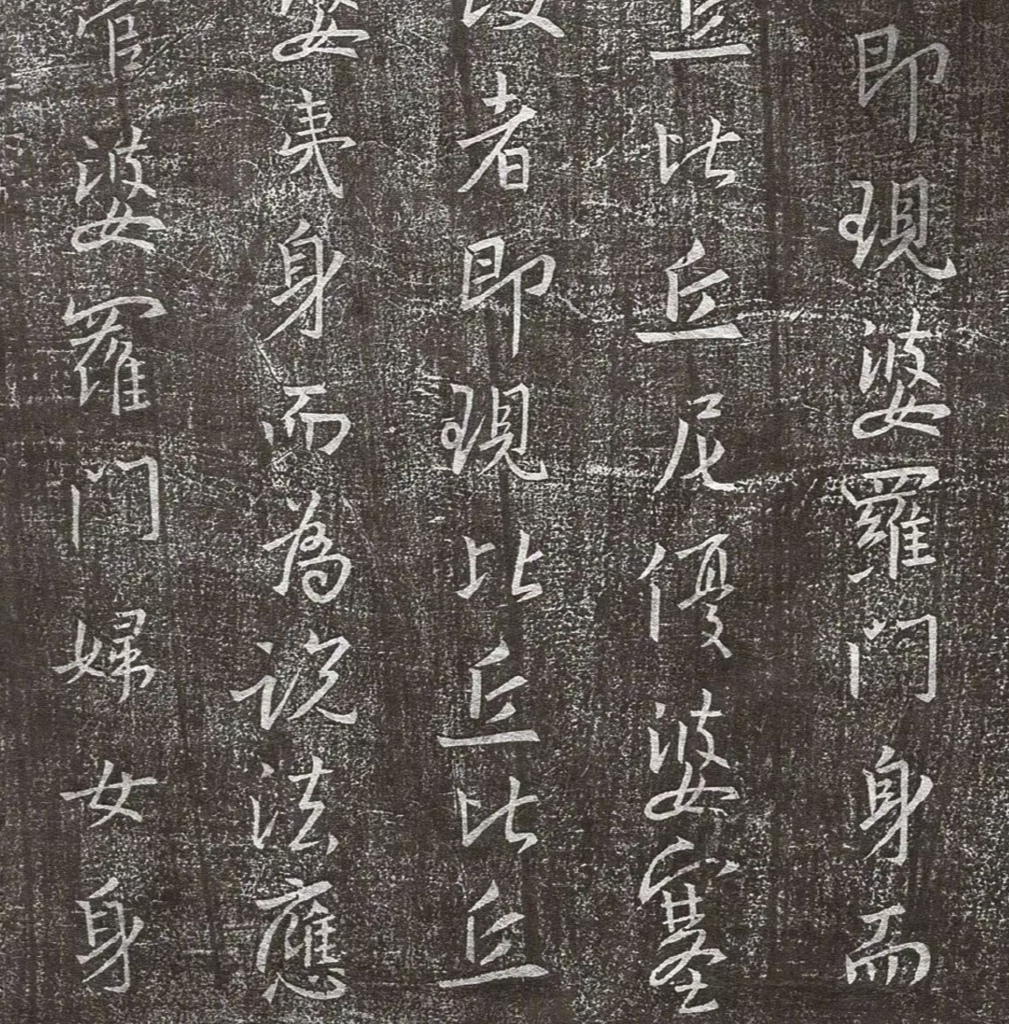 即現婆羅門身而
丘比丘尼優婆塞
度者即現比丘比丘
婆夷身而為說法應
官婆羅門婦女身